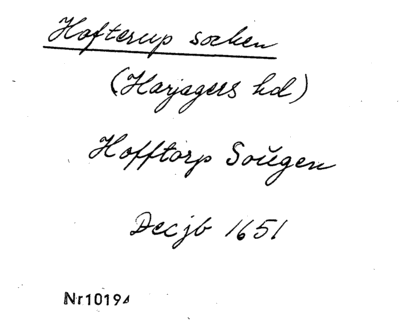 Hofterup socken
(Harjagers hd)
Hofftorp Soŭgen
Decjb 1651
Nr10194